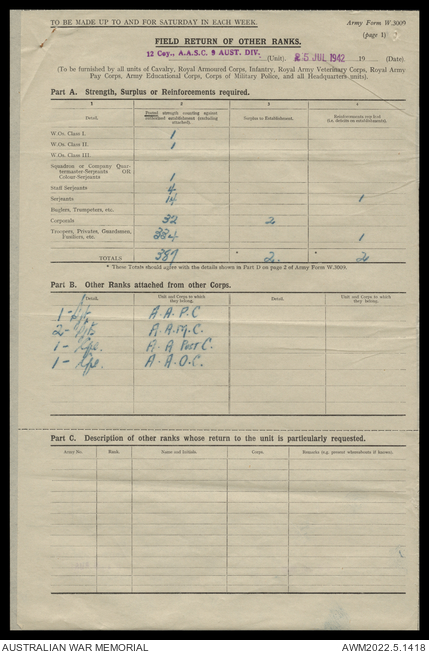 TO BE MADE UP TO AND FOR SATURDAY IN EACH WEEK.
Army Form W.3009
(page 1)
FIELD RETURN OF OTHER RANKS.
12 Coy., A.A.S.C. 9 AUST. DIV. (Unit). 25 JUL 1942 19 (Date)
(To be furnished by all units of Cavalry, Royal Armoured Corps, Infantry, Royal Army Veterinary Corps, Royal Army
Pay Corps, Army Educational Corps, Corps of Military Police, and all Headquarters units).
Part A. Strength, Surplus or Reinforcements required.
1 2 3 4
Detail. Posted strength counting against authorised establishment (excluding attached). Surplus to Establishment. Reinforcements required (i.e. deficits on establishments).
W.Os. Class I. 1
W.Os. Class II. 1
W.Os. Class III.
Squadron or Company Quar-
termaster-Serjeants OR
Colour-Serjeants 1
Staff Serjeants 4
Serjeants 14 1
Buglers, Trumpeters, etc.
Corporals 32 2
Troopers, Privates, Guardsmen,
Fusiliers, etc. 334 1
TOTALS 387 2. 2
* These Totals should agree with the details shown in Part D on page 2 of Army Form W.3009.
Part B. Other Ranks attached from other Corps.
Detail. Unit and Corps to which they belong. Detail. Unit and Corps to which they belong.
1 - Sjt A.A.P.C
2 - Sjts A.A.M.C.
1 - Cpl. A.A POST C.
1 - Cpl. A.A.O.C.
Part C. Description of other ranks whose return to the unit is particularly requested.
Army No. Rank. Name and Initials. Corps. Remarks (e.g. present whereabouts if known).
AUSTRALIAN WAR MEMORIAL
AWM2022.5.1418